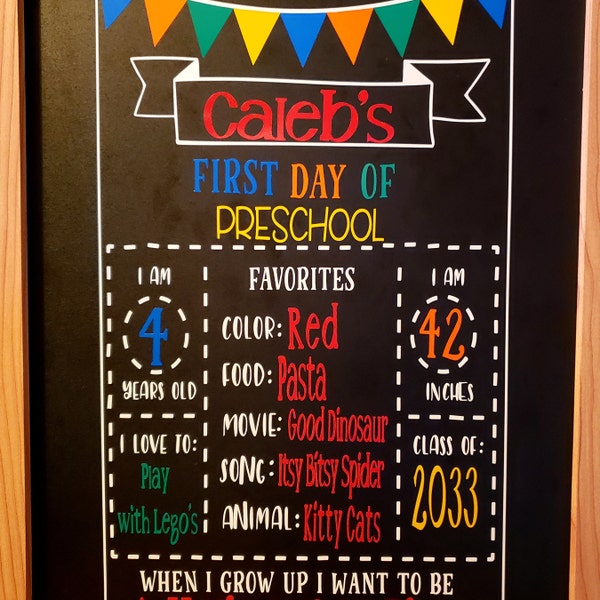 Caleb's
FIRST DAY OF
PRESCHOOL
I AM
4
YEARS OLD
I LOVE TO:
Play
with Lego's
FAVORITES
COLOR: Red
FOOD: Pasta
MOVIE: Good Dinosaur
SONG: Itsy Bitsy Spider
ANIMAL: Kitty Cats
I AM
42
INCHES
CLASS OF:
2033
WHEN I GROW UP I WANT TO BE